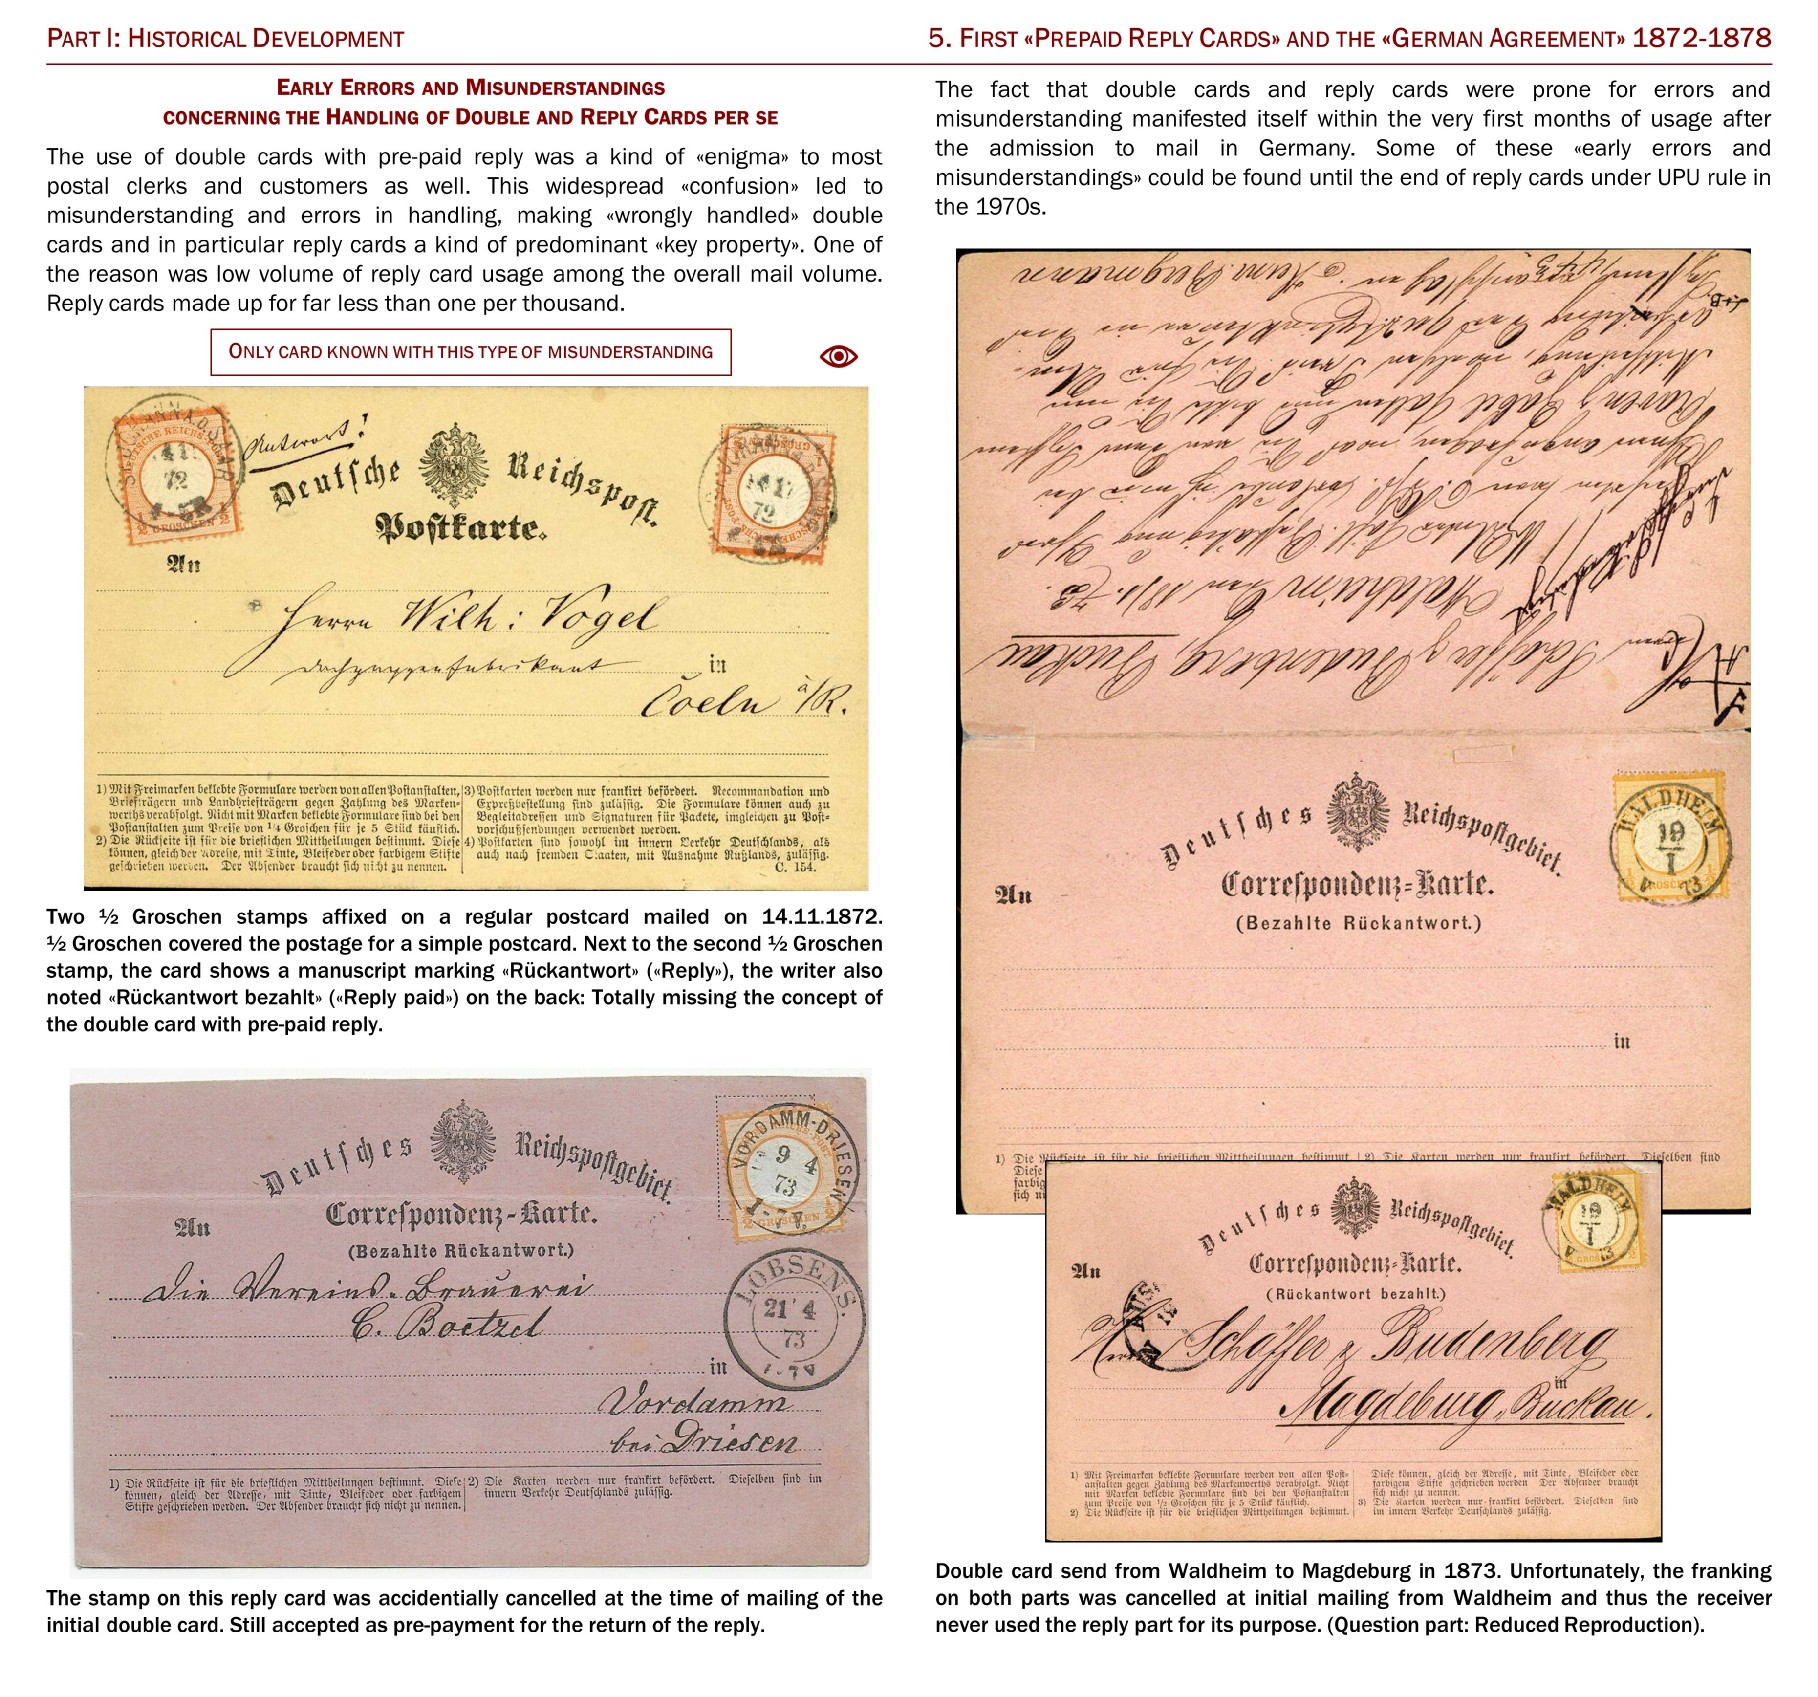 PART I: HISTORICAL DEVELOPMENT
5. FIRST «PREPAID REPLY CARDS» AND THE «GERMAN AGREEMENT» 1872-1878
EARLY ERRORS AND MISUNDERSTANDINGS
CONCERNING THE HANDLING OF DOUBLE AND REPLY CARDS PER SE
The use of double cards with pre-paid reply was a kind of «enigma» to most
postal clerks and customers as well. This widespread «confusion» led to
misunderstanding and errors in handling, making «wrongly handled» double
cards and in particular reply cards a kind of predominant «key property». One of
the reason was low volume of reply card usage among the overall mail volume.
Reply cards made up for far less than one per thousand.
ONLY CARD KNOWN WITH THIS TYPE OF MISUNDERSTANDING
Antwort!
Deutsche Reichspost.
Postkarte.
An
Herrn Wilh: Vogel
in
Coeln a/R.
1) Mit Freimarken beklebte Formulare werden von allen Postanstalten,
Briefträgern und Landbriefträgern gegen Zahlung des Marken-
werths verabfolgt. Nicht mit Marken beklebte Formulare sind bei den
Postanstalten zum Preise von 1/4 Groschen für je 5 Stück käuflich.
2) Die Rückseite ist für die brieflichen Mittheilungen bestimmt. Diese
können, gleich der Adresse, mit Tinte, Bleifeder oder farbigem Stifte
geschrieben werden. Der Absender braucht sich nicht zu nennen.
3) Postkarten werden nur frankirt befördert. Recommandation und
Expreßbestellung sind zulässig. Die Formulare können auch zu
Begleitadressen und Signaturen für Packete, imgleichen zu Post-
vorschußsendungen verwendet werden.
4) Postkarten sind sowohl im innern Verkehr Deutschlands, als
auch nach fremden Staaten, mit Ausnahme Rußlands, zulässig.
C. 154.
Two ½ Groschen stamps affixed on a regular postcard mailed on 14.11.1872.
½ Groschen covered the postage for a simple postcard. Next to the second ½ Groschen
stamp, the card shows a manuscript marking «Rückantwort» («Reply»), the writer also
noted «Rückantwort bezahlt» («Reply paid») on the back: Totally missing the concept of
the double card with pre-paid reply.
Deutsches Reichspostgebiet.
Correspondenz-Karte.
(Bezahlte Rückantwort.)
An
VORDAMM-DRIESEN
9 4
73
LOBSENS.
21 4
73
Die Vereins-Brauerei
C. Boetzel
in
Vordamm
bei Driesen
1) Die Rückseite ist für die brieflichen Mittheilungen bestimmt. Diese
können, gleich der Adresse, mit Tinte, Bleifeder oder farbigem
Stifte geschrieben werden. Der Absender braucht sich nicht zu nennen.
2) Die Karten werden nur frankirt befördert. Dieselben sind im
innern Verkehr Deutschlands zulässig.
The stamp on this reply card was accidentially cancelled at the time of mailing of the
initial double card. Still accepted as pre-payment for the return of the reply.
The fact that double cards and reply cards were prone for errors and
misunderstanding manifested itself within the very first months of usage after
the admission to mail in Germany. Some of these «early errors and
misunderstandings» could be found until the end of reply cards under UPU rule in
the 1970s.
Schäffer & Budenberg, Buckau
Deutsches Reichspostgebiet.
Correspondenz-Karte.
(Bezahlte Rückantwort.)
An
WALDHEIM
19
I
73
in
1) Die Rückseite ist für die brieflichen Mittheilungen bestimmt.
2) Die Karten werden nur frankirt befördert. Dieselben sind
Deutsches Reichspostgebiet.
Correspondenz-Karte.
(Rückantwort bezahlt.)
An
WALDHEIM
19
I
73
Schäffer & Budenberg
in
Magdeburg, Buckau.
1) Mit Freimarken beklebte Formulare werden von allen Post-
anstalten gegen Zahlung des Markenwerths verabfolgt. Nicht
mit Marken beklebte Formulare sind bei den Postanstalten
zum Preise von 1/2 Groschen für je 5 Stück käuflich.
2) Die Rückseite ist für die brieflichen Mittheilungen bestimmt.
Diese können, gleich der Adresse, mit Tinte, Bleifeder oder
farbigem Stifte geschrieben werden. Der Absender braucht
sich nicht zu nennen.
3) Die Karten werden nur frankirt befördert. Dieselben sind
im innern Verkehr Deutschlands zulässig.
Double card send from Waldheim to Magdeburg in 1873. Unfortunately, the franking
on both parts was cancelled at initial mailing from Waldheim and thus the receiver
never used the reply part for its purpose. (Question part: Reduced Reproduction).